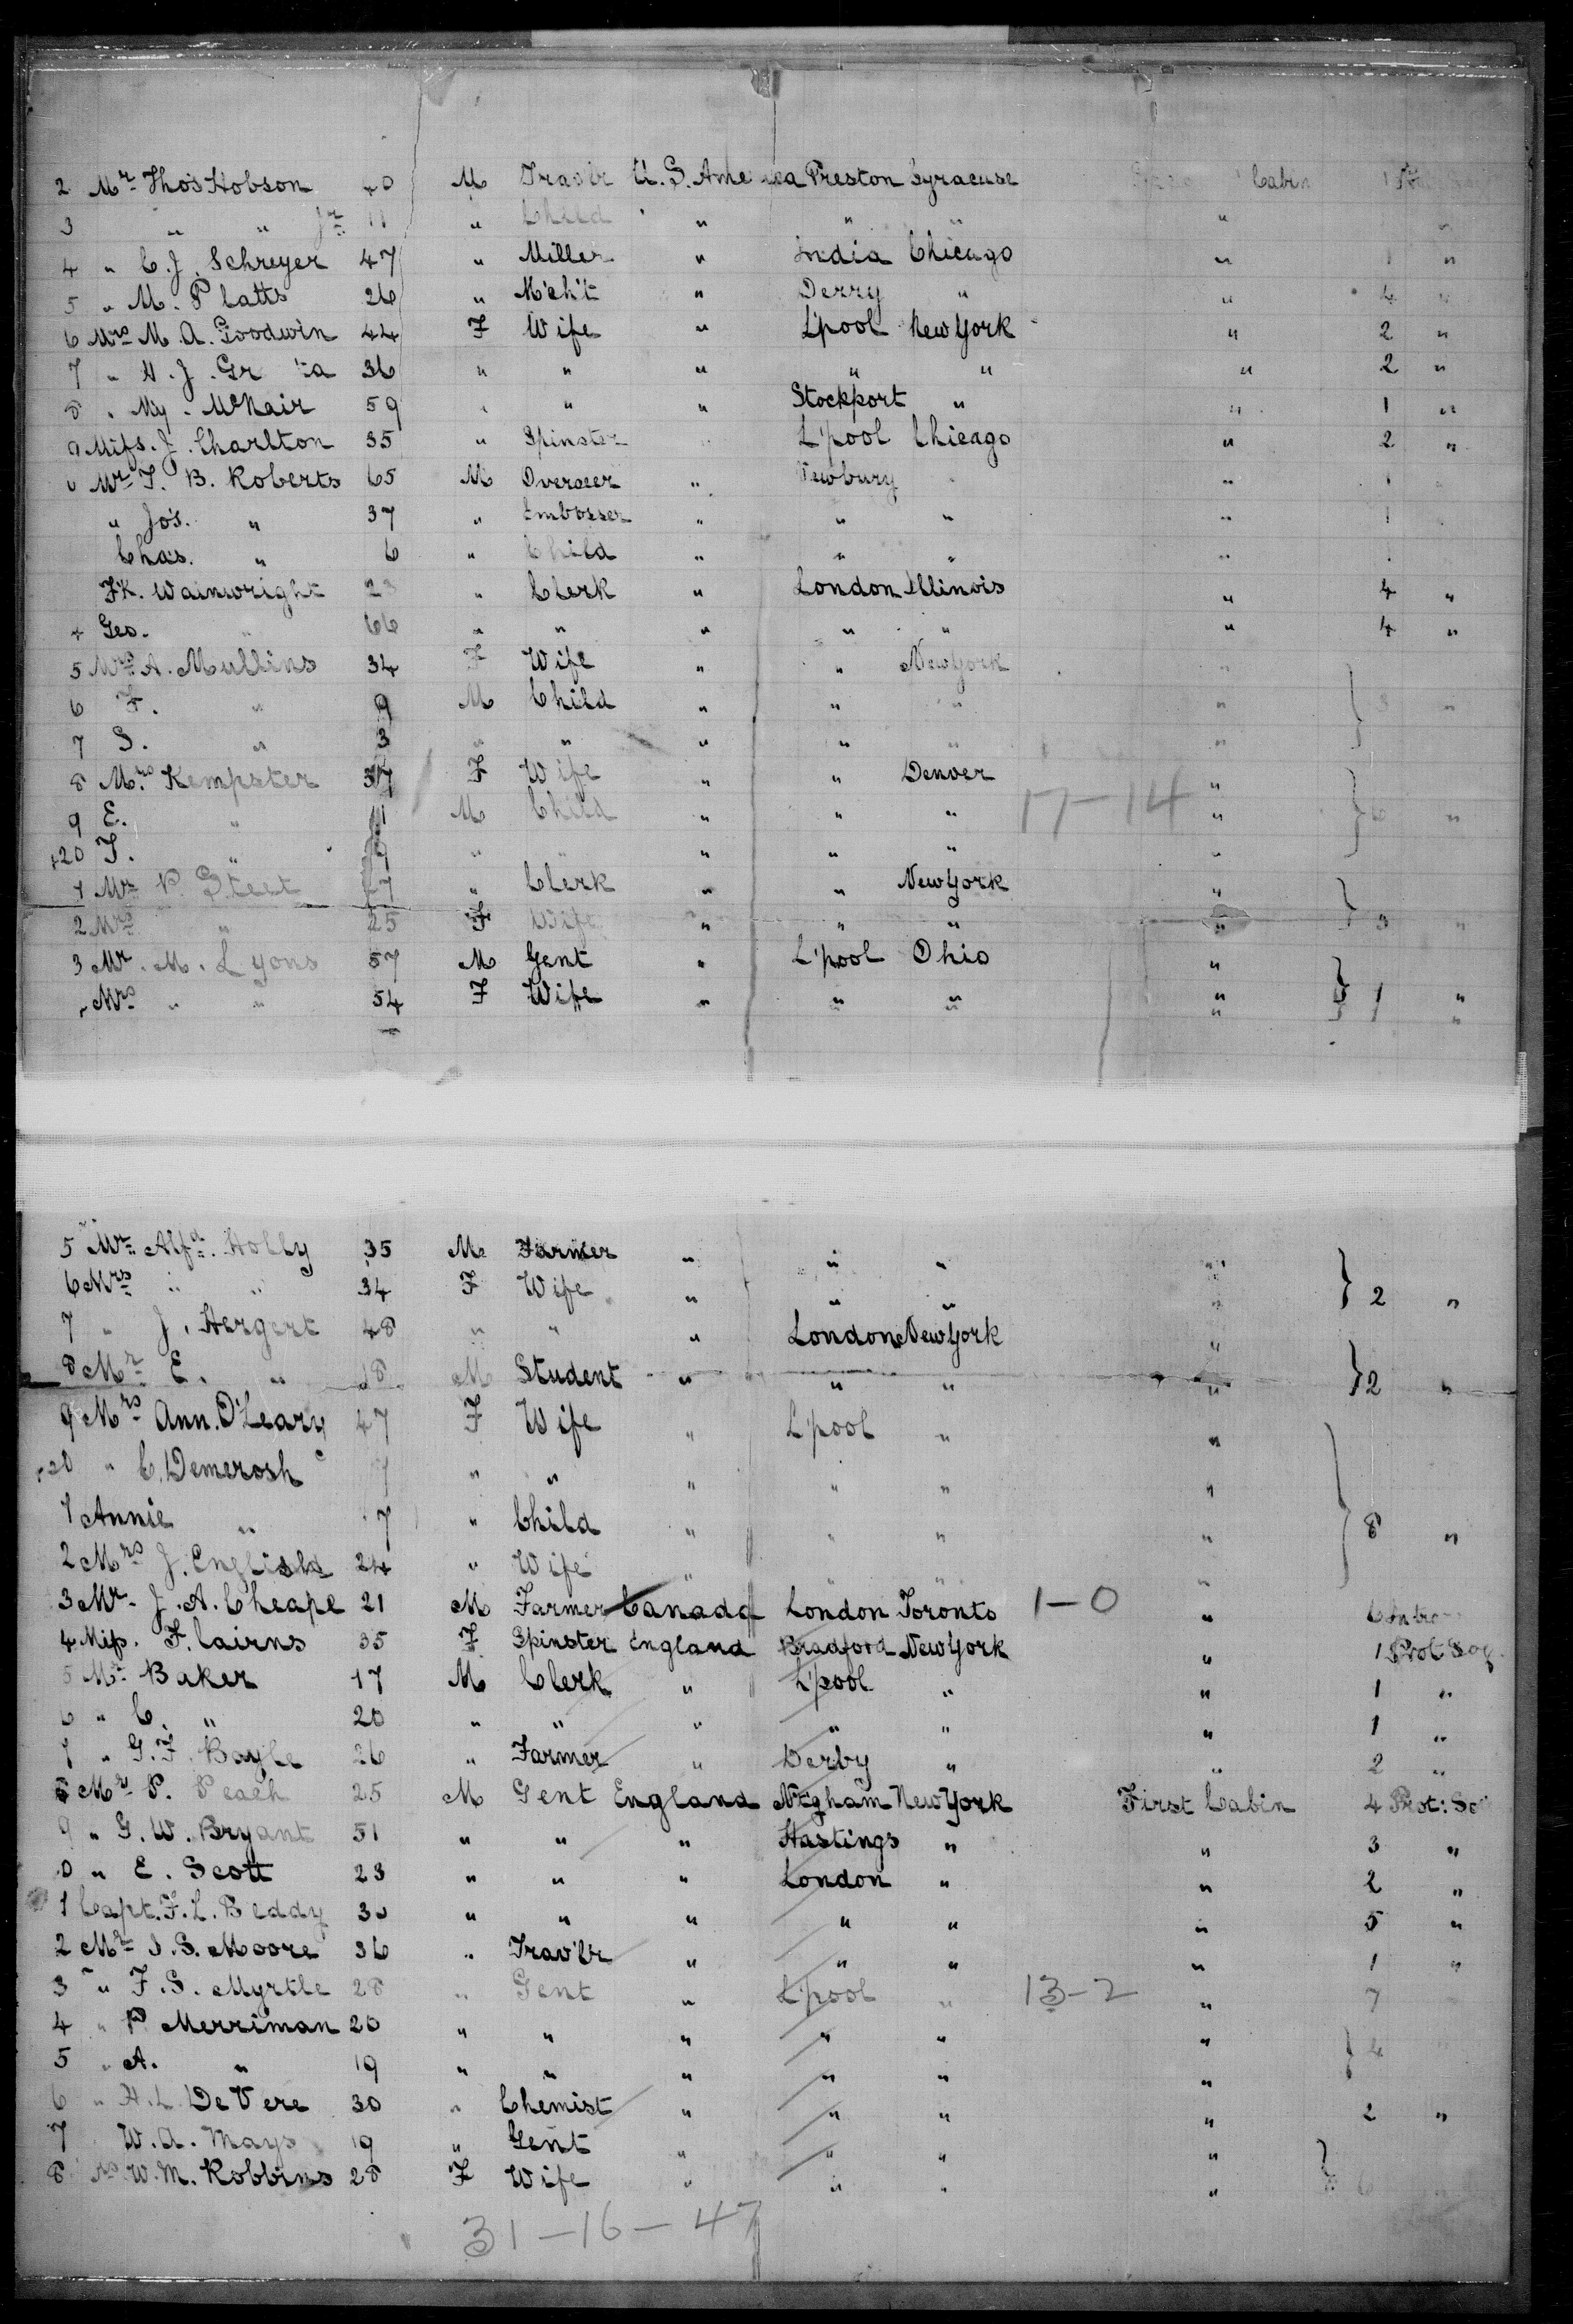 2 Mr Thos Hobson 40 M Trav'lr U.S. America Preston Syracuse Cabin 1
3 " " Jr 11 " Child " " " "
4 " C. J. Schreyer 47 " Miller " India Chicago " 1 "
5 " M. Platts 26 " M'ch't " Derry " " 4 "
6 Mrs M. A. Goodwin 44 F Wife " L'pool New York " 2 "
7 " H. J. 36 " " " " " " 2 "
8 " My. McNair 59 " " " Stockport " " 1 "
9 Miss. J. Charlton 35 " Spinster " L'pool Chicago " 2 "
0 Mr T. B. Roberts 65 M Overseer " Newbury " " 1 "
" Jos. " 37 " Embosser " " " " 1
Chas. " 6 " Child " " " "
Fk. Wainwright " Clerk " London Illinois " 4 "
4 Geo. " 66 " " " " " " 4 "
5 Mrs A. Mullins 34 F Wife " " New York "
6 F. " 9 M Child " " " " } 3 "
7 S. " 3 " " " " " "
8 Mrs Kempster 37 F Wife " " Denver "
9 E. " 11 M Child " " " 17-14 " } 6 "
20 T. " 9 " " " " " "
1 Mr P. Steet 27 " Clerk " " New York "
2 Mrs " 25 F Wife " " " " } 3 "
3 Mr. M. Lyons 57 M Gent " L'pool Ohio "
Mrs " " 54 F Wife " " " " } 1 "
5 Mr Alfd. Holly 35 M Farmer " " " "
6 Mrs " " 34 F Wife " " " " } 2 "
7 " J. Hergert 48 " " " London New York "
8 Mr E. " 18 M Student " " " " } 2 "
9 Mrs Ann. O'Leary 47 F Wife " L'pool " "
" C. Demerosh " " " " " "
1 Annie " 7 " Child " " " " } 8 "
2 Mrs J. English 24 " Wife " " " "
3 Mr. J. A. Cheape 21 M Farmer Canada London Toronto 1-0 " 6
4 Miss. F. Cairns 35 F Spinster England Bradford New York " 1
5 Mr Baker 17 M Clerk " L'pool " " 1 "
6 " C. " 20 " " " " " " 1 "
7 " G. F. Bayle 26 " Farmer " Derby " " 2 "
8 Mr P. Peach 25 M Gent England N'gham New York First Cabin 4
9 " G. W. Bryant 51 " " " Hastings " " 3 "
0 " E. Scott 23 " " " London " " 2 "
1 Capt. F. L. Beddy 30 " " " " " " 5 "
2 Mr I. S. Moore 36 " Trav'lr " " " " 1 "
3 " F. S. Myrtle 28 " Gent " L'pool " 13-2 " 7
4 " P. Merriman 20 " " " " " "
5 " A. " 19 " " " " " " } 4
6 " H. L. De Vere 30 " Chemist " " " " 2 "
7 W. A. Mays 19 " Gent " " " "
8 Mrs W. M. Robbins 28 F Wife " " " " }
31-16-47